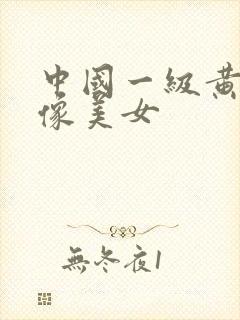 中國一級黃
像美女
無冬夜1